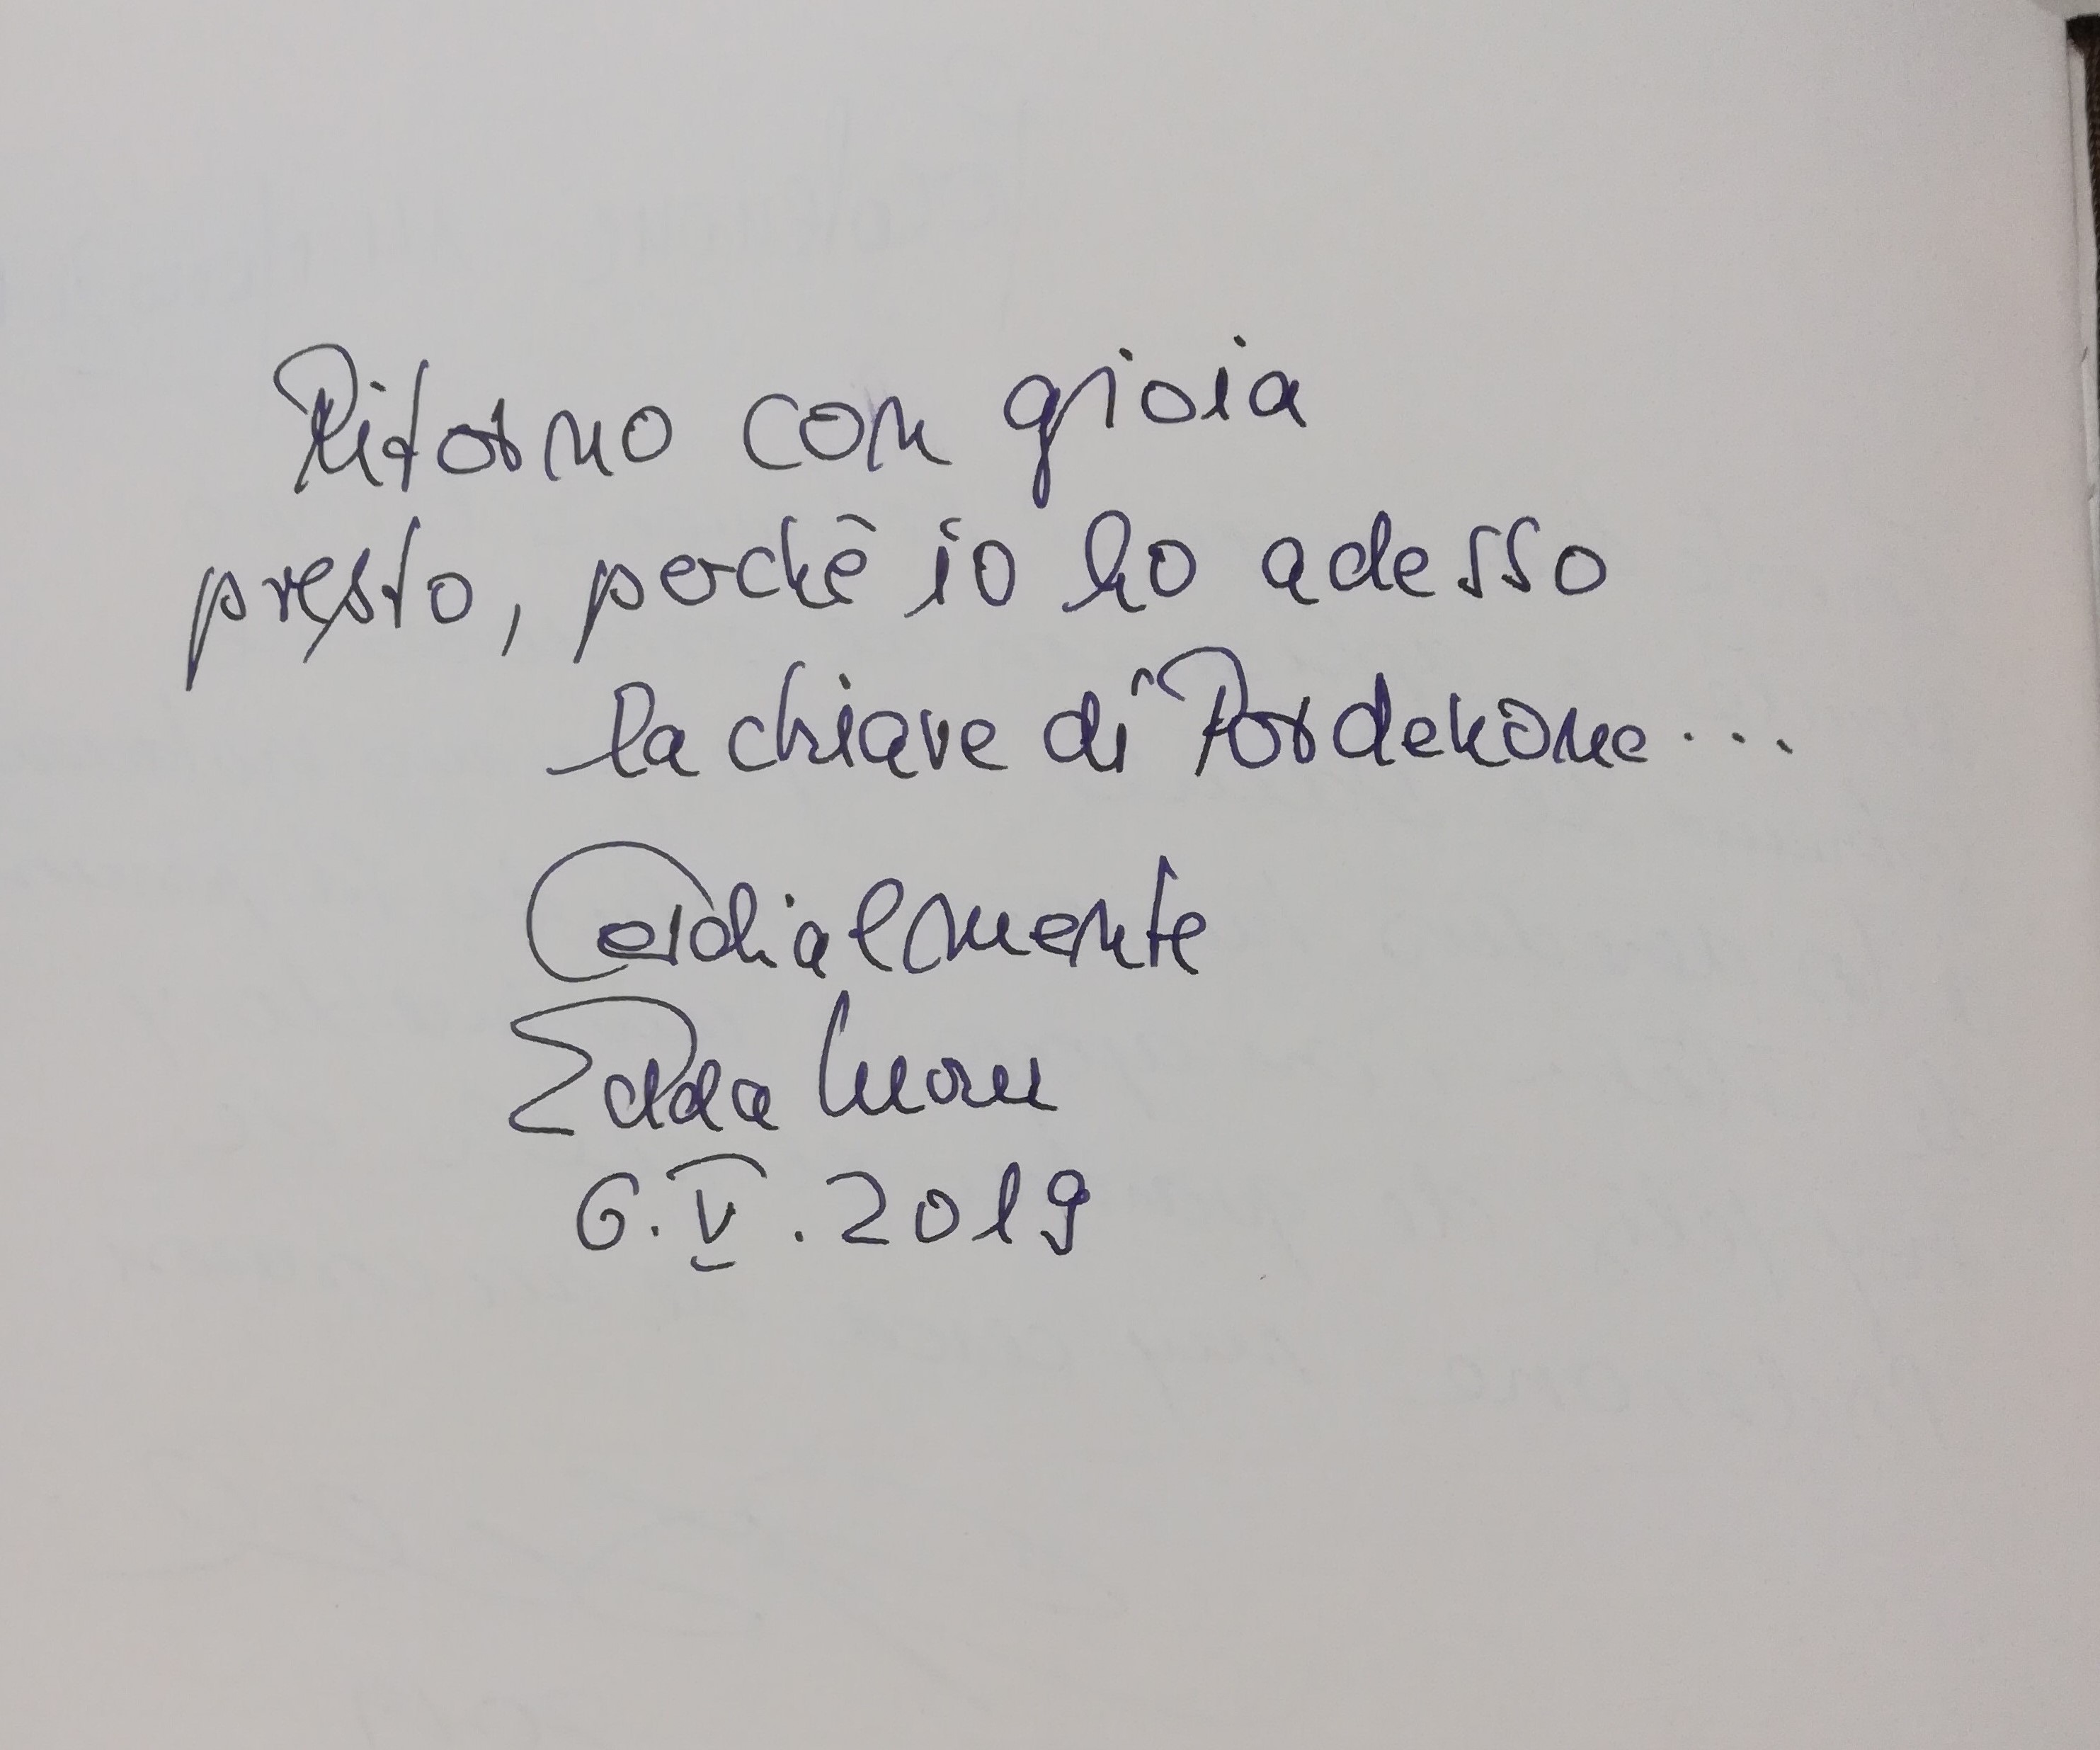 Ritorno con gioia
presto, perchê io ho adesso
la chiave di Pordenone...
Cordialmente
Edda
6.V.2019